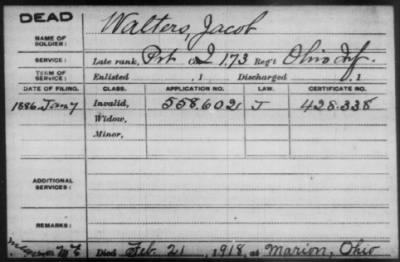 DEAD
Walters, Jacob
NAME OF SOLDIER:
SERVICE: Late rank, Prt. Co. I, 173 Reg't Ohio Inf.
TERM OF SERVICE: Enlisted , 1 Discharged , 1
DATE OF FILING. CLASS. APPLICATION NO. LAW. CERTIFICATE NO.
1886 Jan'y 7 Invalid, 558.602 J 428.338
Widow,
Minor,
ADDITIONAL SERVICES:
REMARKS:
Died Feb. 21, 1918, at Marion, Ohio